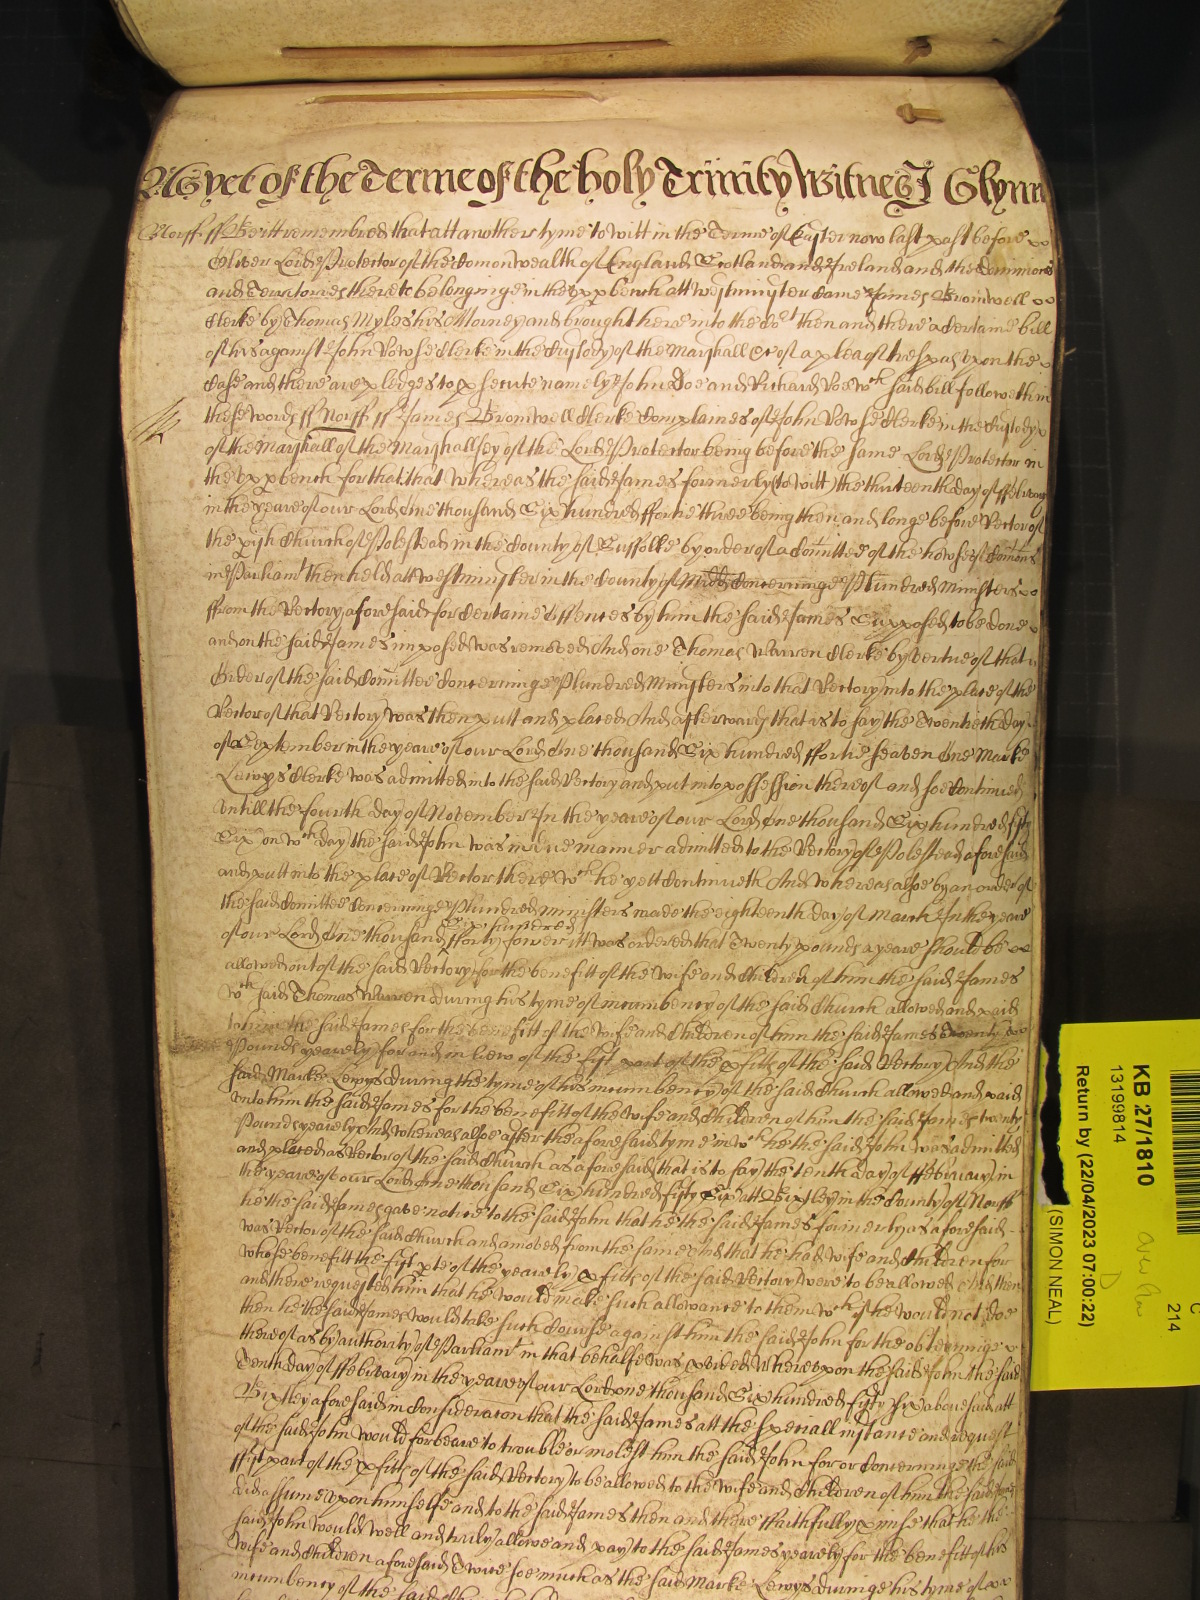 As yet of the Terme of the holy Trinity Witnes J Glynn
Norff ss Be itt remembred that att another tyme to witt in the Terme of Easter now last past before
Oliver Lord Protector of the Comonwealth of England Scotland and Ireland and the Dominions
and Territories thereto belonginge in the upp bench att Westminster came James Bromwell
Clerke by Thomas Myles his Attorney and brought here into the Cort then and there a certaine bill
of his against John Vowse Clerke in the Custody of the Marshall &c of a plea of trespas upon the
Case and there are pledges to psecute namely John Doe and Richard Roe wch said bill followeth in
these words ss Norff ss James Bromwell Clerke Complaines of John Vowse Clerke in the Custody
of the Marshall of the Marshallsey of the Lord Protector being before the same Lord Protector in
the upp bench for that that Whereas the said James formerly (to witt) the thirteenth day of ffebruary
in the yeare of our Lord One thousand Six hundred ffortie three being then and longe before Rector of
the pish Church of Polestead in the County of Suffolke by order of a Comittee of the howse of Comons
in Parliamt then held att Westminster in the County of Midd Concerninge Plundred Ministers
ffrom the Rectory aforesaid for Certaine Offences by him the said James Supposed to be done
and on the said James imposed was removed And one Thomas Warren Clerke by vertue of that
Order of the said Comittee Concerninge Plundred Ministers into that Rectory into the place of the
Rector of that Rectory was then putt and placed And afterwards that is to say the Twentieth day
of September in the yeare of our Lord One thousand Six hundred ffortie seaven One Marke
Lewys Clerke was admitted into the said Rectory and put into possession thereof and soe Continued
untill the fourth day of November In the yeare of our Lord One thousand Six hundred fifty
Six on wch day the said John was in due manner admitted to the Rectory of Polestead aforesaid
and put into the place of Rector there wch he yett Continueth And whereas alsoe by an order of
the said Comittee Concerninge Plundred Ministers made the eighteenth day of March In the yeare
of our Lord One thousand Six hundred fforty fower itt was ordered that Twenty pounds a yeare should be
allowed out of the said Rectory for the benefitt of the wife and Children of him the said James
wch said Thomas Warren during his tyme of incumbency of the said Church allowed and paid
to him the said James for the benefitt of the Wife and Children of him the said James Twenty
Pounds yearely for and in liew of the fift part of the pfitts of the said Rectory And the
said Marke Lewys during the tyme of his incumbency of the said Church allowed and paid
unto him the said James for the benefitt of the Wife and Children of him the said James twenty
Pounds yearely And whereas alsoe after the aforesaid tyme in wch he the said John was admitted
and placed as Rector of the said Church as aforesaid that is to say the tenth day of ffebruary in
the yeare of our Lord One thousand Six hundred fifty Six att Bixley in the County of Norff
he the said James gave notice to the said John that he the said James formerly as aforesaid
was Rector of the said Church and amoved from the same And that he had wife and Children for
whose benefitt the fift pte of the yearely pfitts of the said Rectory were to be allowed And then
and there requested him that he would make such allowance to them wch if he would not doe
then he the said James would take such Course against him the said John for the obteyninge
thereof as by authority of Parliamt in that behalfe was pvided Whereupon the said John the said
Tenth day of ffebruary in the yeare of our Lord one thousand Six hundred fifty six abovesaid att
Bixley aforesaid in Consideracon that the said James att the speciall instance and request
of the said John would forbeare to trouble or molest him the said John for or Concerninge the said
ffift part of the pfitts of the said Rectory to be allowed to the Wife and Children of him the said James
did assume upon himselfe and to the said James then and there ffaithfully pmise that he the
said John would well and truly allowe and pay to the said James yearely for the benefitt of his
Wife and Children aforesaid Twice soe much as the said Marke Lewys duringe his tyme of
incumbency of the said
KB 27/1810
13199814
Return by (22/04/2023 07:00:22)
(SIMON NEAL)
C
214
D